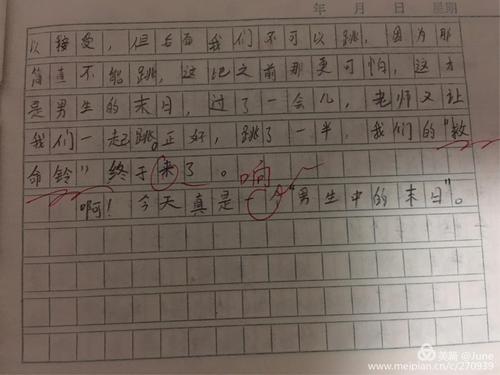 年 月 日 星期
以接受，但右面我们不可以跳，因为那
简直不能跳，这比之前那更可怕，这才
是男生的末日，过了一会儿，老师又让
我们一起跳。正好，跳了一半，我们的“救
命铃”终于来了。响
啊！今天真是一个“男生中的末日”。
美篇 @June
www.meipian.cn/c/270939